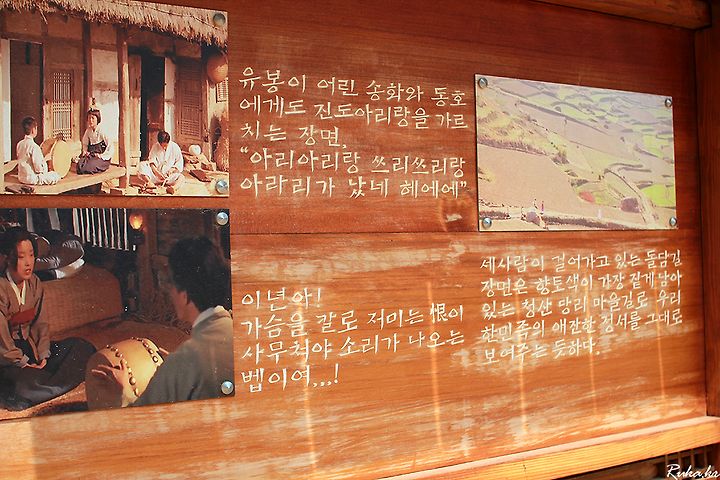 유봉이 어린 송화와 동호
에게도 진도아리랑을 가르
치는 장면,
“아리아리랑 쓰리쓰리랑
아라리가 났네 헤에에”
이년아!
가슴을 칼로 저미는 恨이
사무쳐야 소리가 나오는
벱이여...!
세사람이 걸어가고 있는 돌담길
장면은 향토색이 가장 짙게 남아
있는 청산 당리 마을길로 우리
한민족의 애잔한 정서를 그대로
보여주는 듯하다.
Ruka.ks